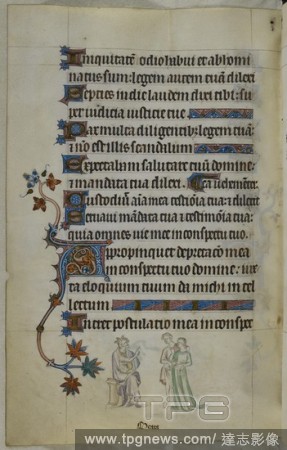 Iniquitatem odio habui et abhomi
natus sum: legem autem tuam dilexi
Septies in die laudem dixi tibi: su
per iudicia iusticie tue
Pax multa diligentibus legem tuam:
et non est illis scandalum
Expectabam salutare tuum domine:
et mandata tua dilexi
Custodivit anima mea testimonia tua: et dilexit
Servavi mandata tua et testimonia tua:
quia omnes vie mee in conspectu tuo
Appropinquet deprecatio mea
in conspectu tuo domine: iuxta
eloquium tuum da michi intel
lectum
Intret postulatio mea in conspec
TPG
www.tpgnews.com / 達志影像